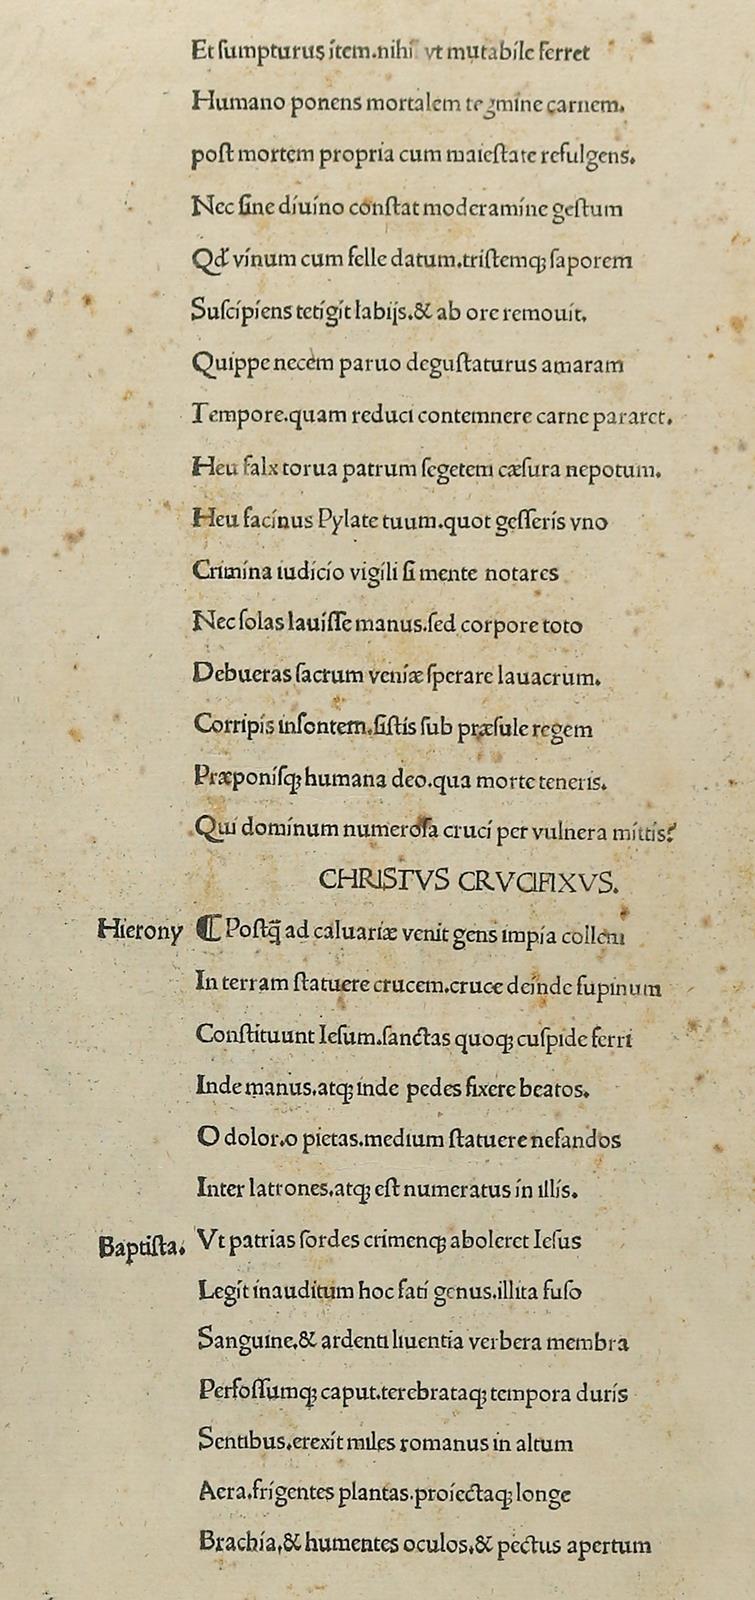 Et sumpturus item.nihi vt mutabile ferret
Humano ponens mortalem tegmine carnem.
post mortem propria cum maiestate refulgens.
Nec sine diuino constat moderamine gestum
Qđ vinum cum felle datum.tristemqꝫ saporem
Suscipiens tetigit labijs.& ab ore remouit.
Quippe necem paruo degustaturus amaram
Tempore.quam reduci contemnere carne pararet.
Heu falx torua patrum segetem cæsura nepotum.
Heu facinus Pylate tuum.quot gesseris vno
Crimina iudicio vigili si mente notares
Nec solas lauisse manus.sed corpore toto
Debueras sacrum veniæ sperare lauacrum.
Corripis insontem.sistis sub præsule regem
Præponisqꝫ humana deo.qua morte teneris.
Qui dominum numerosa cruci per vulnera mittis?
CHRISTVS CRVCIFIXVS.
Hierony ⁋ Postq̄ ad caluariæ venit gens impia collem
In terram statuere crucem.cruce deinde supinum
Constituunt Iesum.sanctas quoqꝫ cuspide ferri
Inde manus.atqꝫ inde pedes fixere beatos.
O dolor.o pietas.medium statuere nefandos
Inter latrones.atqꝫ est numeratus in illis.
Baptista. Vt patrias sordes crimenqꝫ aboleret Iesus
Legit inauditum hoc fati genus.illita fuso
Sanguine.& ardenti liuentia verbera membra
Perfossumqꝫ caput.terebrataqꝫ tempora duris
Sentibus.erexit miles romanus in altum
Aera.frigentes plantas.proiectaqꝫ longe
Brachia,& humentes oculos.& pectus apertum